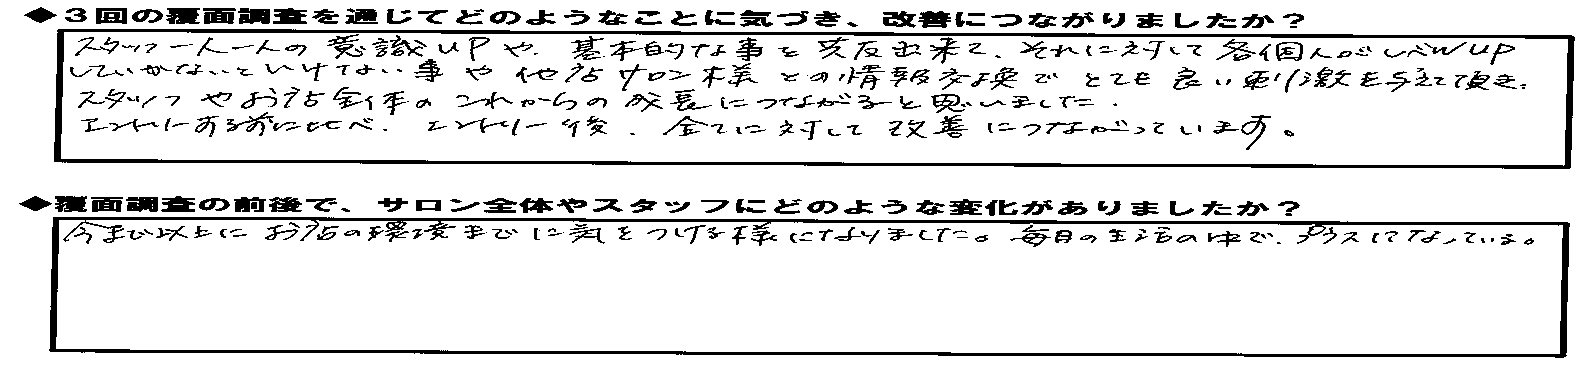 ◆３回の覆面調査を通じてどのようなことに気づき、改善につながりましたか？
スタッフ一人一人の意識UPや、基本的な事を実反出来て、それに対して各個人がレベルUP
していかないといけない事や他店サロン様との情報交換でとても良い刺激を与えて頂き、
スタッフやお店全体のこれからの成長につながると思いました。
エントリーする前に比べ、エントリー後、全てに対して改善につながっています。
◆覆面調査の前後で、サロン全体やスタッフにどのような変化がありましたか？
今まで以上にお店の環境までに気をつける様になりました。毎日の生活の中で、プラスになっている。